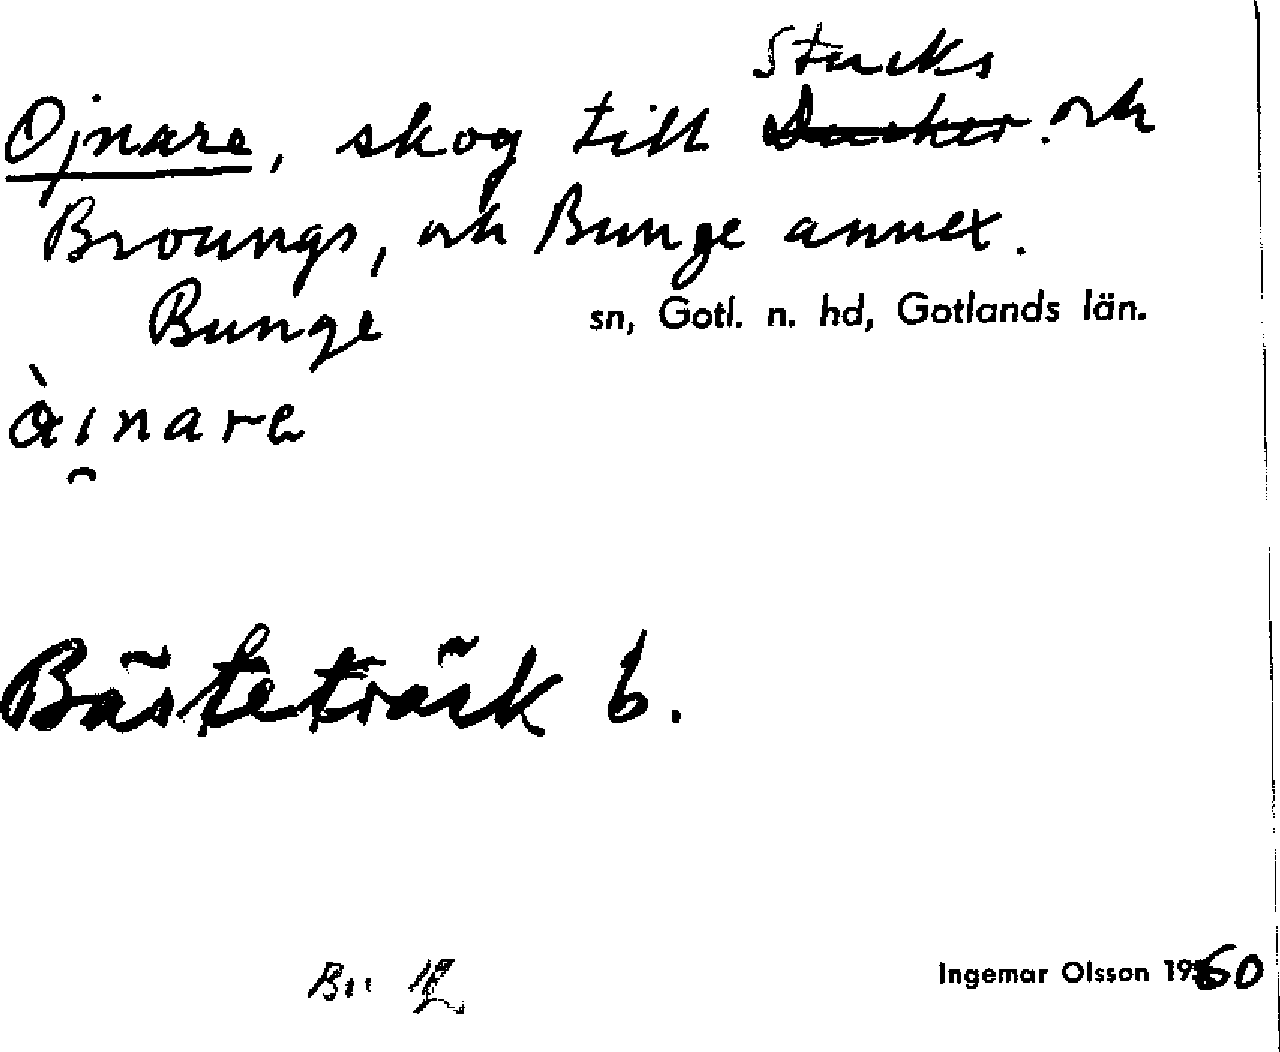 Stucks
Ojnare, skog till Ducker. och
Broungs, och Bunge annex.
Bunge sn, Gotl. n. hd, Gotlands län.
àı̯nare
Bästeträsk b.
Ingemar Olsson 1960